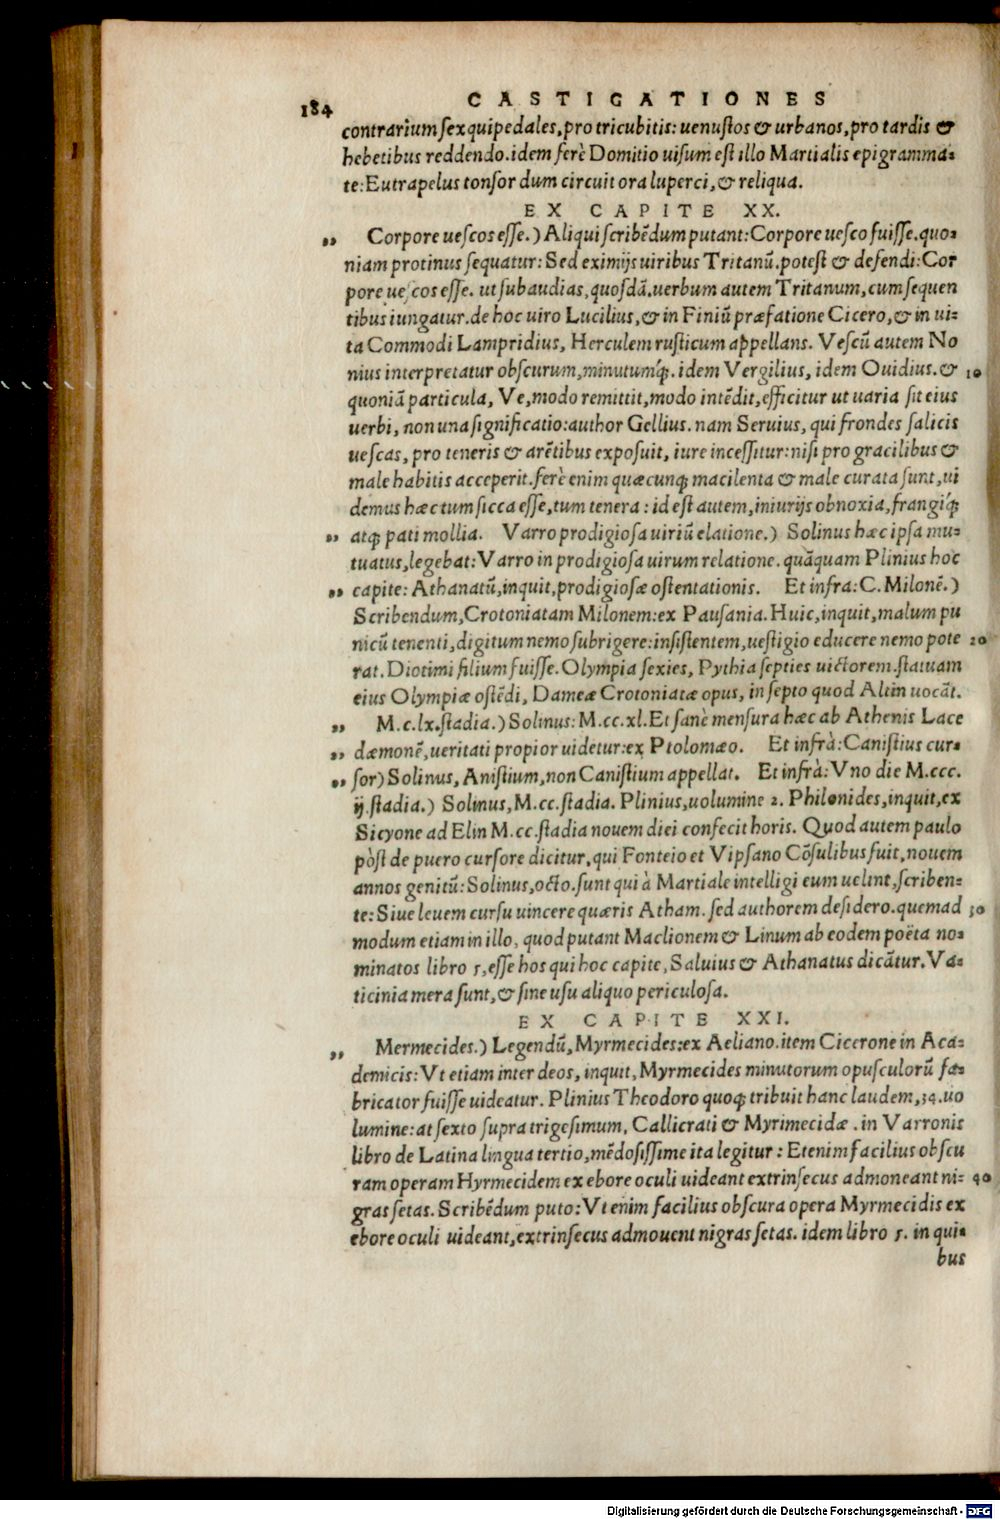 184 CASTIGATIONES
contrarium sexquipedales, pro tricubitis: uenustos & urbanos, pro tardis &
hebetibus reddendo. idem ferè Domitio uisum est illo Martialis epigramma-
te: Eutrapelus tonsor dum circuit ora luperci, & reliqua.
EX CAPITE XX.
„ Corpore uescos esse.) Aliqui scribēdum putant: Corpore uesco fuisse. quo-
niam protinus sequatur: Sed eximijs uiribus Tritanū. potest & defendi: Cor
pore uescos esse. ut subaudias, quosdā. uerbum autem Tritanum, cum sequen
tibus iungatur. de hoc uiro Lucilius, & in Finiū præfatione Cicero, & in ui-
ta Commodi Lampridius, Herculem rusticum appellans. Vescū autem No
nius interpretatur obscurum, minutumq́;. idem Vergilius, idem Ouidius. & 10
quoniā particula, Ve, modo remittit, modo intēdit, efficitur ut uaria sit eius
uerbi, non una significatio: author Gellius. nam Seruius, qui frondes salicis
uescas, pro teneris & arētibus exposuit, iure incessitur: nisi pro gracilibus &
male habitis acceperit. ferè enim quæcunq; macilenta & male curata sunt, ui
demus hæc tum sicca esse, tum tenera: id est autem, iniurijs obnoxia, frangiq́;
„ atq; pati mollia. Varro prodigiosa uiriū elatione.) Solinus hæc ipsa mu-
tuatus, legebat: Varro in prodigiosa uirum relatione. quāquam Plinius hoc
„ capite: Athanatū, inquit, prodigiosæ ostentationis. Et infra: C. Milonē.)
Scribendum, Crotoniatam Milonem: ex Pausania. Huic, inquit, malum pu
nicū tenenti, digitum nemo subrigere: insistentem, uestigio educere nemo pote 20
rat. Diotimi filium fuisse. Olympia sexies, Pythia septies uictorem. statuam
eius Olympiæ ostēdi, Dameæ Crotoniatæ opus, in septo quod Altin uocāt.
„ M.c.lx. stadia.) Solinus: M.cc.xl. Et sanè mensura hæc ab Athenis Lace
„ dæmonē, ueritati propior uidetur: ex Ptolomæo. Et infrà: Canistius cur-
„ sor) Solinus, Anistium, non Canistium appellat. Et infrà: Vno die M.ccc.
ij. stadia.) Solinus, M.cc. stadia. Plinius, uolumine 2. Philonides, inquit, ex
Sicyone ad Elin M.cc. stadia nouem diei confecit horis. Quod autem paulo
pòst de puero cursore dicitur, qui Fonteio et Vipsano Cōsulibus fuit, nouem
annos genitū: Solinus, octo. sunt qui à Martiale intelligi eum uelint, scriben-
te: Siue leuem cursu uincere quæris Atham. sed authorem desidero. quemad 30
modum etiam in illo, quod putant Maclionem & Linum ab eodem poëta no-
minatos libro 5, esse hos qui hoc capite, Saluius & Athanatus dicātur. Va-
ticinia mera sunt, & sine usu aliquo periculosa.
EX CAPITE XXI.
„ Mermecides.) Legendū, Myrmecides: ex Aeliano. item Cicerone in Aca-
demicis: Vt etiam inter deos, inquit, Myrmecides minutorum opusculorū fa-
bricator fuisse uideatur. Plinius Theodoro quoq; tribuit hanc laudem, 34. uo
lumine: at sexto supra trigesimum, Callicrati & Myrimecidæ. in Varronis
libro de Latina lingua tertio, mēdosissime ita legitur: Etenim facilius obscu
ram operam Hyrmecidem ex ebore oculi uideant extrinsecus admoneant ni- 40
gras setas. Scribēdum puto: Vt enim facilius obscura opera Myrmecidis ex
ebore oculi uideant, extrinsecus admouent nigras setas. idem libro 5. in qui-
bus
Digitalisierung gefördert durch die Deutsche Forschungsgemeinschaft - DFG